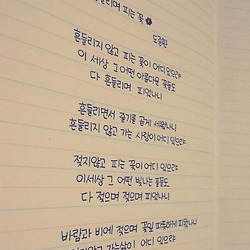 흔들리며 피는 꽃
도종환
흔들리지 않고 피는 꽃이 어디 있으랴
이 세상 그 어떤 아름다운 꽃들도
다 흔들리며 피었나니
흔들리면서 줄기를 곧게 세웠나니
흔들리지 않고 가는 사랑이 어디 있으랴
젖지않고 피는 꽃이 어디 있으랴
이세상 그 어떤 빛나는 꽃들도
다 젖으며 젖으며 피었나니
바람과 비에 젖으며 꽃잎 따뜻하게 피웠나니
젖지않고 가는삶이 어디 있으랴